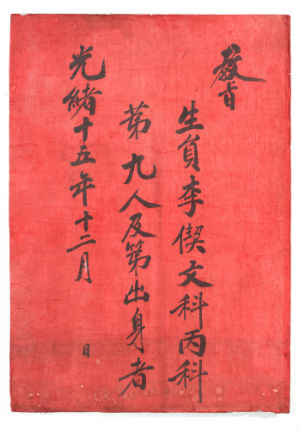 教旨
生員李偰文科丙科
第九人及第出身者
光緒十五年十二月 日